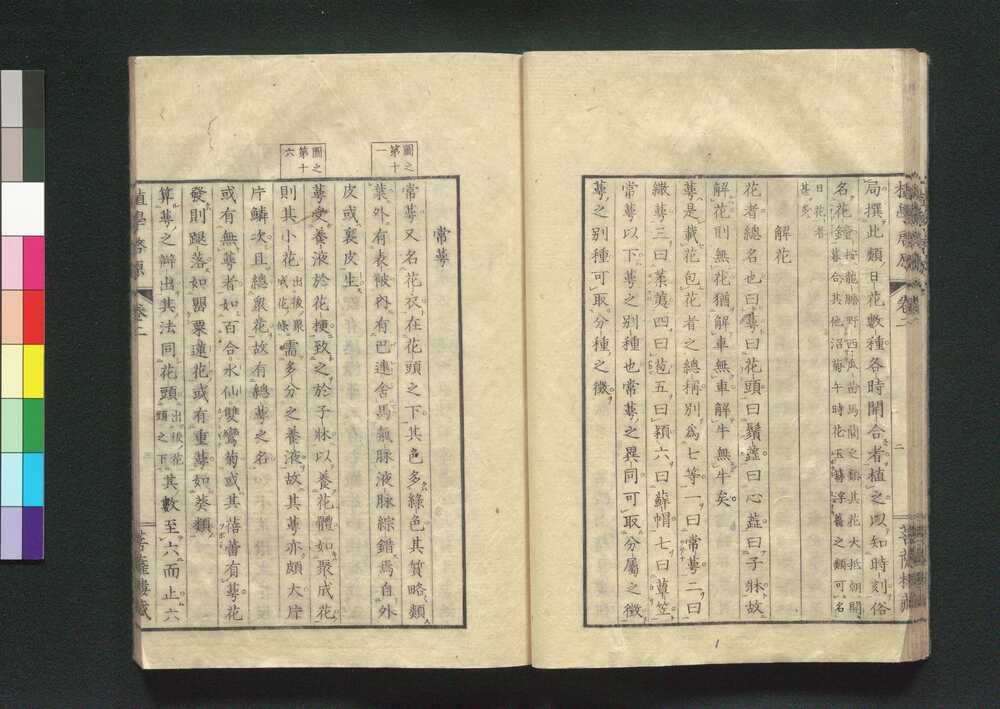 局撰此類日花數種各時開合者植之以知時刻俗
名花鐘
按龍膽野西瓜苗馬藺之類其花大抵朝開
暮合其他沼菊午時花玉簪
之類可名
日花者
甚多
解花
花者總名也曰萼曰花頭曰鬚蕋曰心蕋曰子牀故
解花則無花猶解車無車解牛無牛矣
萼是載花包花者之總稱別爲七等一曰常萼二曰
繖萼三曰茱萸四曰苞五曰穎六曰蘚帽七曰蕈笠
常萼以下萼之別種也常萼之異同可取分屬之徵
萼之別種可取分種之徵
二
常萼
圖之第十一
常萼又名花衣在花頭之下其色多綠色其質略類
葉外有表被內有巴連舍馬氣脉液脉綜錯焉自外
皮或裏皮生
圖之第十六
萼受養液於花梗致之於子牀以養花體如聚成花
則其小花
出後聚
成花條
需多分之養液故其萼亦頗大片
片鱗次且總衆花故有總萼之名
或有無萼者如百合水仙雙鸞菊或其蓓蕾有萼花
發則踀落如罌粟蓮花或有重萼如葵類
算萼之辯出其法同花頭
出後花
頭之下
其數至六而止六
植學啓原
卷二
菩薩樓藏